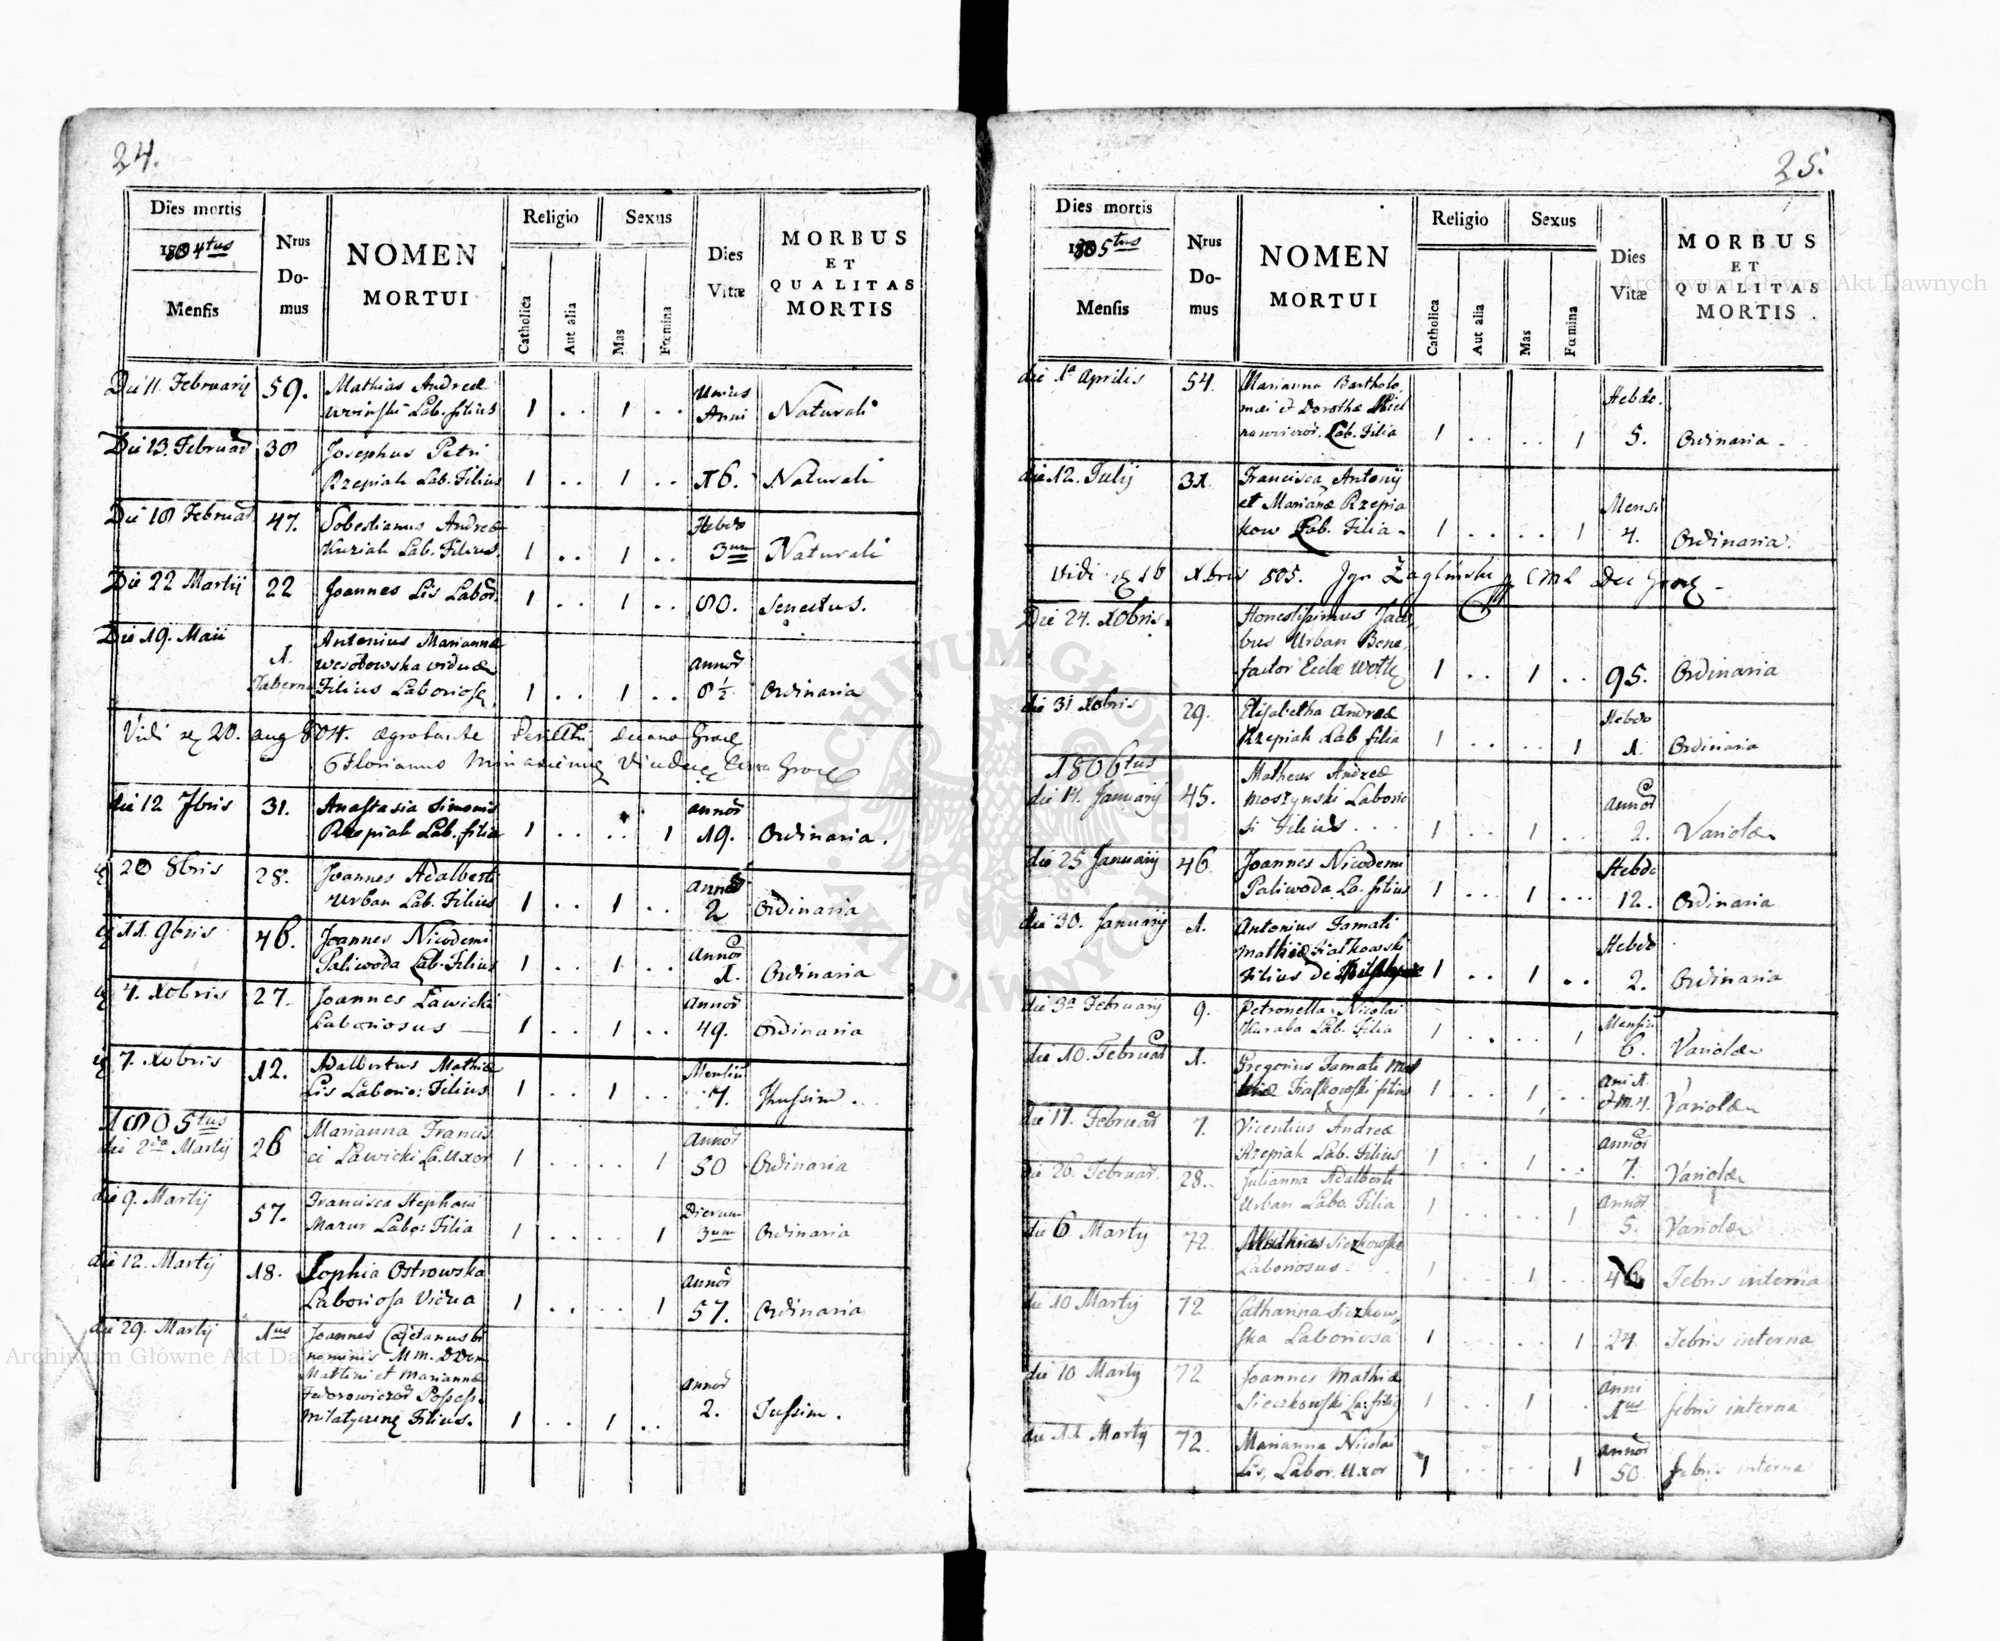 24.
Dies mortis
1804tus
Mensis
Nrus
Do-
mus
NOMEN
MORTUI
Religio
Catholica
Aut alia
Sexus
Mas
Fœmina
Dies
Vitæ
MORBUS
ET
QUALITAS
MORTIS
Die 11. Februarij 59. Mathias Andreæ Unius
Lab. filius 1 .. 1 .. Anni Naturali
Die 13. Februar 38 Josephus Petri
Rzepiak Lab. Filius 1 .. 1 .. 16. Naturali
Die 18 Februar 47. Sobestianus Andreæ Hebdo
Kuziak Lab. Filius 1 .. 1 .. 3um Naturali
Die 22 Martij 22 Joannes Lis Labor. 1 .. 1 .. 80. Senectus.
Die 19. Maii 1. Antonius Mariannæ
Taberna Wesołowska viduæ Annor
Filius Laboriosę 1 .. 1 .. 8½. Ordinaria
Vidi 20. aug 804. ægrotante decano
Florianus
die 12 7bris 31. Anastasia Simonis annor
Rzepiak Lab. filia 1 .. .. 1 19. Ordinaria.
20 8bris 28. Joannes Adalberti Annor
Urban Lab. Filius 1 .. 1 .. 2 Ordinaria
11. 9bris 46. Joannes Nicodemi Annor
Paliwoda Lab. Filius 1 .. 1 .. 1. Ordinaria
4. Xobris 27. Joannes Lawicki Annor
Laboriosus 1 .. 1 .. 49. Ordinaria
7. Xobris 12. Adalbertus Mathiæ Mensiu
Lis Laborio: Filius 1 .. 1 .. 7. Thussim.
1805tus
die 2da Martij 26 Marianna Francis Annor
ci Lawicki La. Uxor 1 .. .. 1 50 Ordinaria
die 9. Martij 57. Francisca Stephani Dierum
Mazur Labo: Filia 1 .. .. 1 3um Ordinaria
die 12. Martij 18. Sophia Ostrowska Annor
Laboriosa Vidua 1 .. .. 1 57. Ordinaria
die 29. Martij 1us Joannes Cajetanus bi
nominis Mm. DDor
Mattini et Mariannæ Annor
Fedorowiczor Posses.
Filius. 1 .. 1 .. 2. Tussim.
25.
Dies mortis
1805tus
Mensis
Nrus
Do-
mus
NOMEN
MORTUI
Religio
Catholica
Aut alia
Sexus
Mas
Fœmina
Dies
Vitæ
MORBUS
ET
QUALITAS
MORTIS
die 1a Aprilis 54. Marianna Bartholo Hebdo.
mæi et Dorothæ
Lab. Filia 1 .. .. 1 5. Ordinaria
die 12. Julij 31. Francisca Antonij
et Marianæ Rzepia Mensi
kow Lab. Filia 1 .. .. 1 4. Ordinaria.
Vidi 16 Xbris 805. Ign Zagliński
Die 24. Xobris Honestissimus Jaco
bus Urban Bene
factor Eccłæ 1 .. 1 .. 95. Ordinaria
die 31 Xobris 29. Elisabetha Andreæ Hebdo
Rzepiak Lab filia 1 .. .. 1 1. Ordinaria
1806tus
die 14. Januarij 45. Matheus Andreæ
Moszynski Laborio Annor
si Filius 1 .. 1 .. 2. Variolæ
die 25 Januarij 46 Joannes Nicodemi Hebdo
Paliwoda La. filius 1 .. 1 .. 12. Ordinaria
die 30. Januarij 1. Antonius Famati Hebdo
Mathiæ Fiałkowski
Filius de 1 .. 1 .. 2. Ordinaria
die 3a Februarij 9. Petronella Nicolai Mensiu
Kuraba Lab. Filia 1 .. .. 1 6. Variolæ
die 10. Februar 1. Gregorius Famati Mat
hiæ Fiałkowski filius 1 .. 1 .. Variolæ
die 17. Februar 7. Vicentius Andreæ Annor
Rzepiak Lab. Filius 1 .. 1 .. 7. Variolæ
die 26. Februar. 28. Julianna Adalberti Annor
Urban Labo. Filia 1 .. .. 1 5. Variolæ
die 6 Martij 72 Mathias Sieczkowski
Laboriosus 1 .. 1 .. 46 Febris interna
die 10 Martij 72 Catharina Sieczkow
ska Laboriosa 1 .. .. 1 24. Febris interna
die 10 Martij 72 Joannes Mathiæ Anni
Sieczkowski La: filius 1 .. 1 . 1us febris interna
die 11 Martij 72. Marianna Nicolai Annor
Lis, Labor. Uxor 1 .. .. 1 50. febris interna
Archiwum Główne Akt Dawnych
Archiwum Główne Akt Dawnych
ARCHIWUM GŁÓWNE AKT DAWNYCH